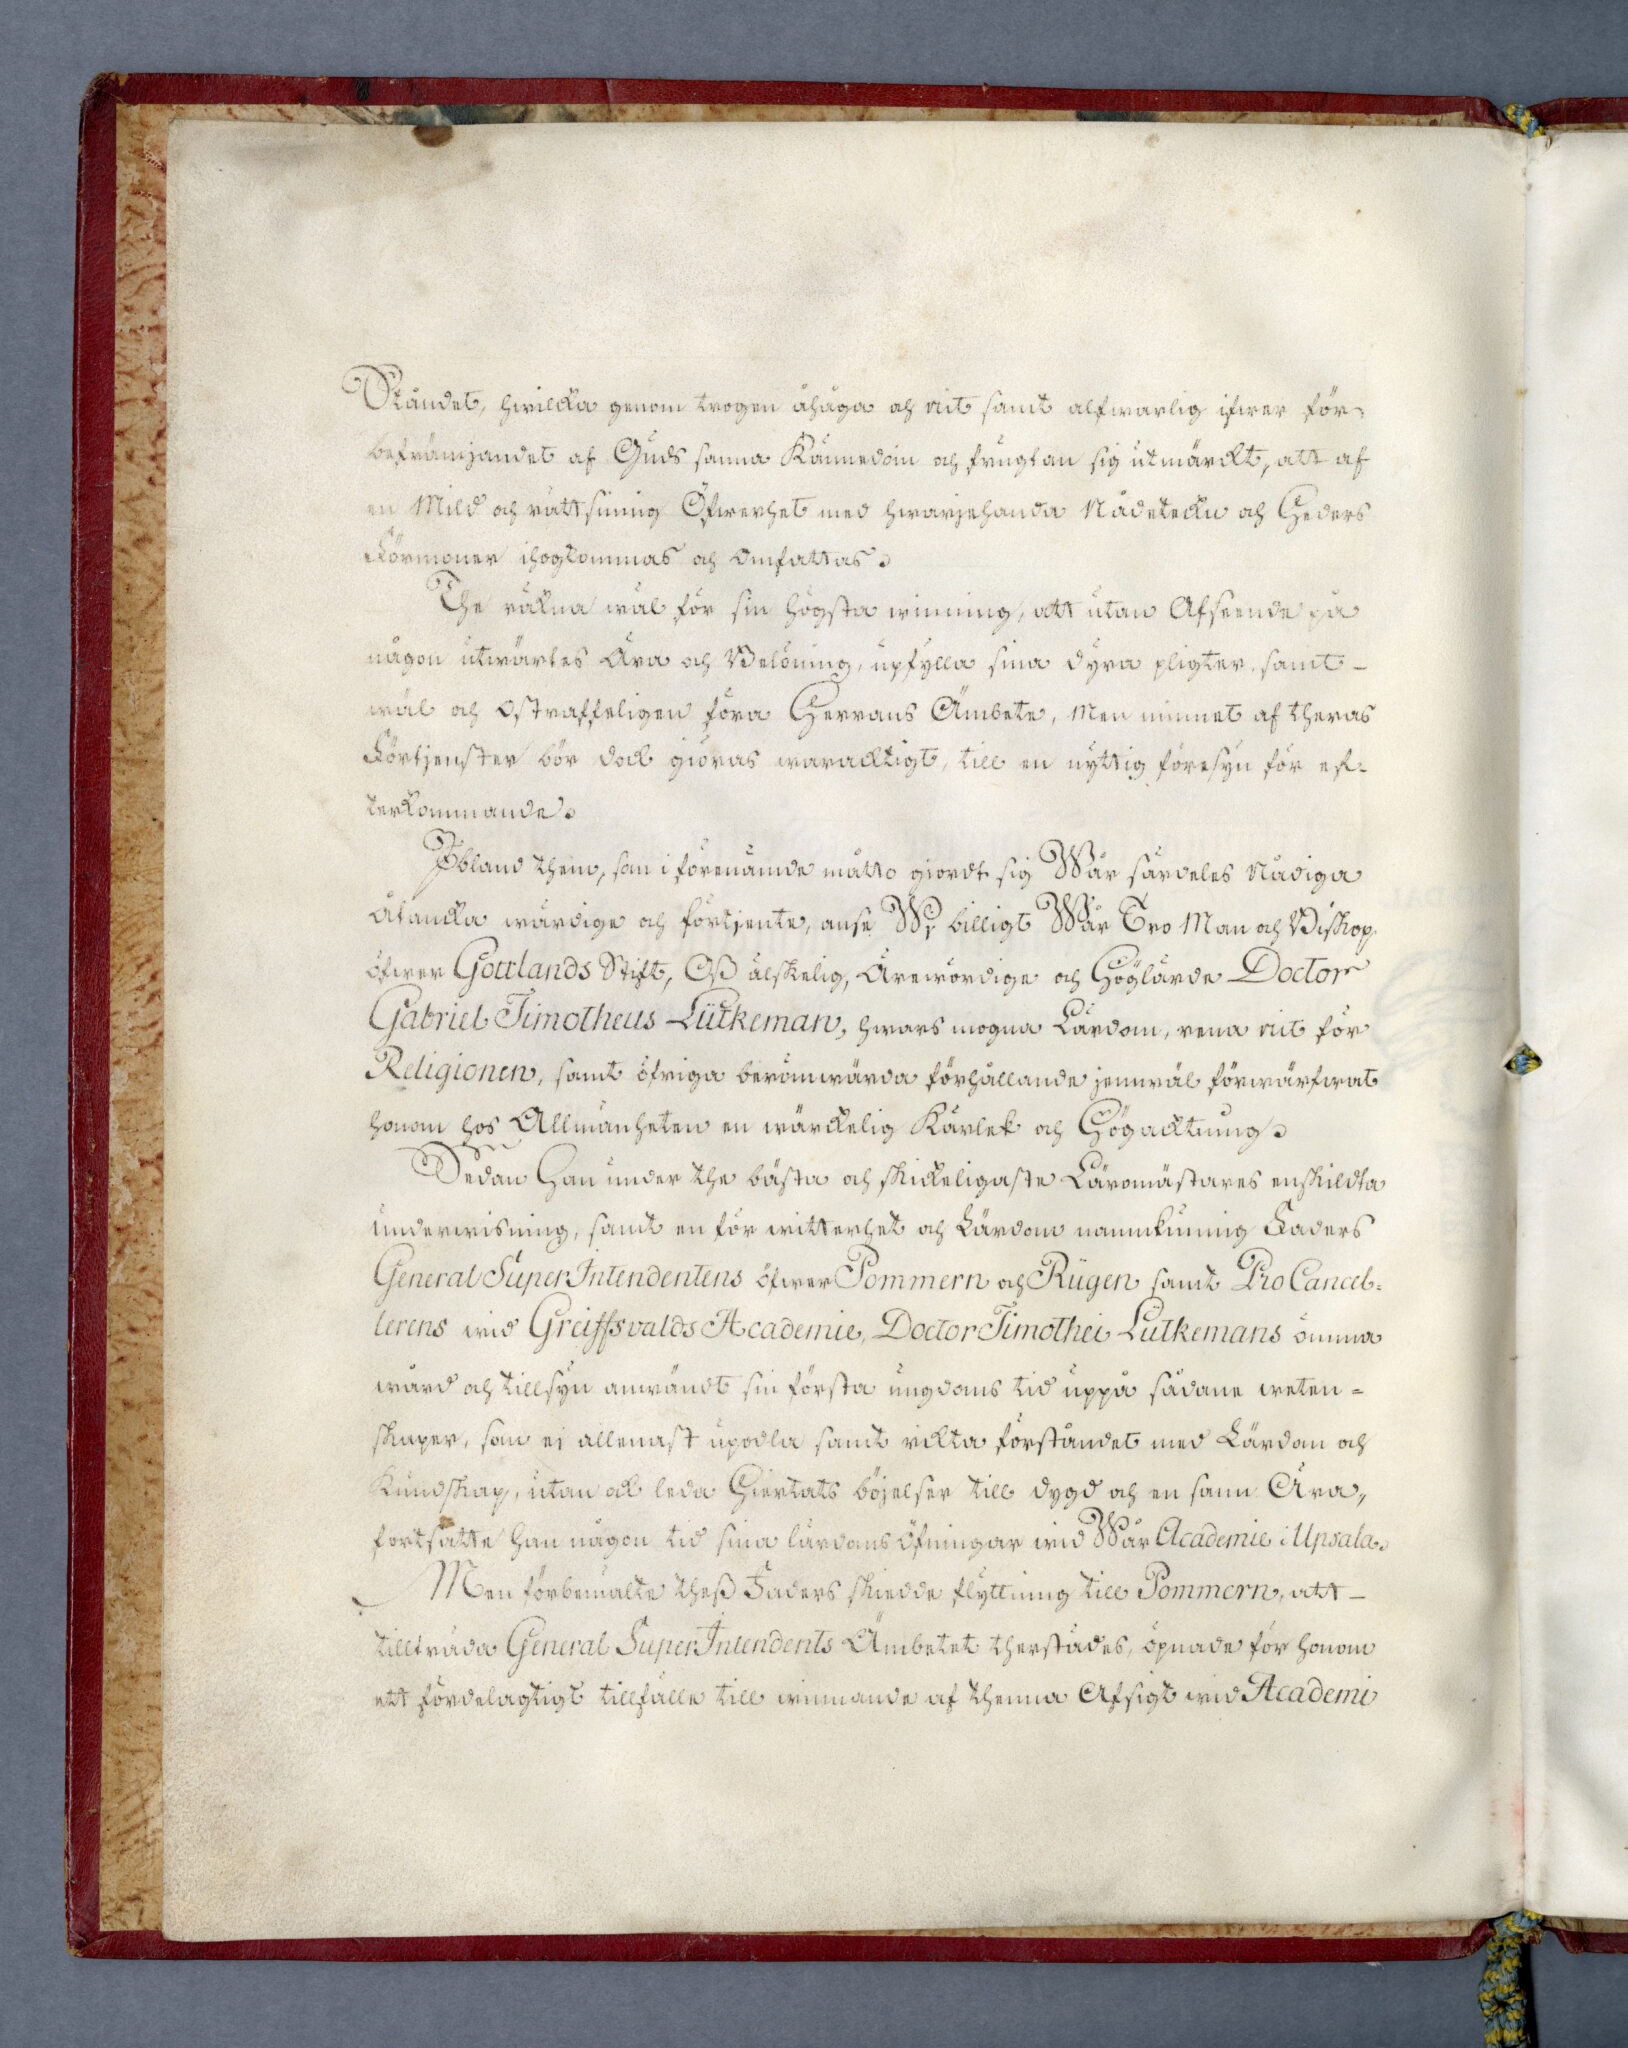 Ståndet, hwilcka genom trogen åhåga och nit samt alfwarlig ifwer för-
befrämjandet af Guds sanna Kännedom och frugtan sig utmärckt, att af
en Mild och rättsinnig Öfwerhet med hwarjehanda Nådeteckn och Heders
Förmoner ihogkommas och omfattas.
The räkna wäl för sin högsta winning, att utan Afseende på
någon utwärtes Ära och Belöning, upfylla sina dyra pligter, samt-
wäl och Ostraffeligen föra Herrans Ämbete, Men minnet af theras
Förtjenster bör dock giöras waracktigt, till en nyttig föresyn för ef-
terkommande.
Jbland them, som i förenämde måtto giordt sig Wår särdeles Nådiga
Åtancka wärdige och förtjente, anse Wj billigt Wår Tro Man och Biskop
öfwer Gottlands Stift, Oß älskelig, Ärewördige och Höglärde Doctor
Gabriel Timotheus Lütkeman, hwars mogna Lärdom, rena nit för
Religionen, samt öfriga berömwärda förhållande jemwäl förwärfwat
honom hos Allmänheten en wärckelig Kärlek och Högacktning.
Sedan Han under the bästa och skickeligaste Läromästares enskildta
underwisning, samt en för witterhet och Lärdom namnkunnig Faders
General Super Intendentens öfwer Pommern och Rügen samt Pro Cancel-
lerens wid Greiffsvalds Academie, Doctor Timothei Lütkemans ömma
wård och tillsyn anwändt sin första ungdoms tid uppå sådane weten-
skaper, som ej allenast upodla samt rickta förståndet med Lärdom och
Kundskap, utan ock leda Hiertats böjelser till dygd och en sann Ära,
fortsatte han någon tid sina lärdoms öfningar wid Wår Academie i Upsala.
Men förbemälte theß Faders skiedde flyttning till Pommern, att-
tillträda General Super Intendents Ämbetet therstädes, öpnade för honom
ett fördelagtigt tillfälle till winnande af thenna Afsigt wid Academi